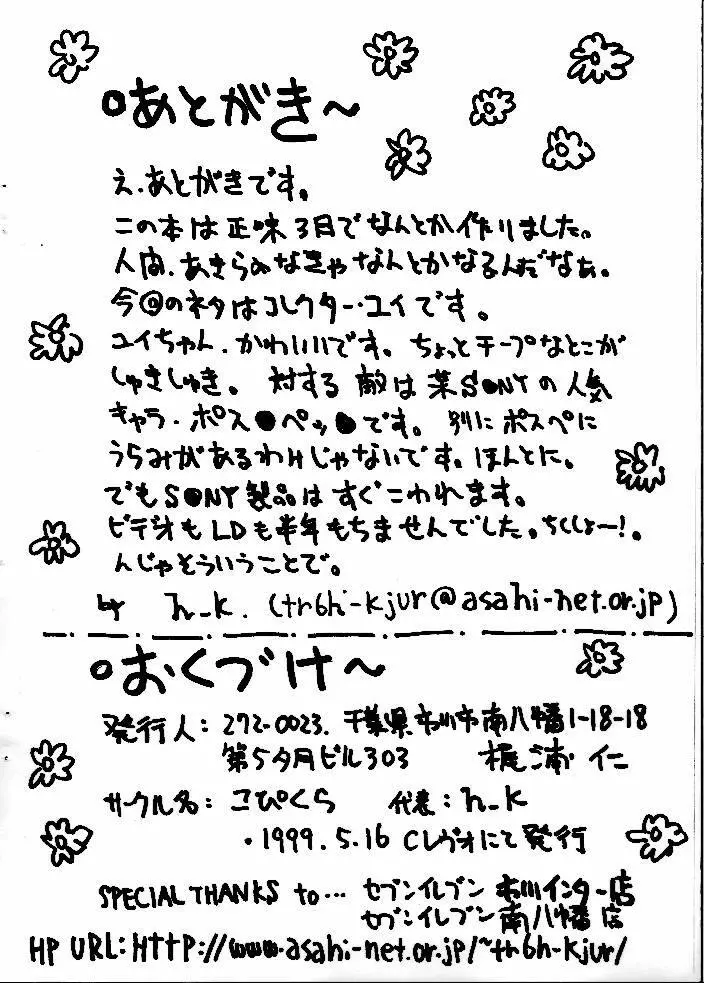 ○あとがき～
え、あとがきです。
この本は正味3日でなんとか作りました。
人間、あきらめなきゃなんとかなるんだなぁ。
今回のネタはコレクター・ユイです。
ユイちゃん、かわいいです。ちょっとチープなとこが
しゅきしゅき。 対する 敵は某S●NYの人気
キャラ・ポス●ペッ●です。 別にポスペに
うらみがあるわけじゃないです。ほんとに。
でもS●NY製品はすぐこわれます。
ビデオもLDも半年もちませんでした。ちくしょー!。
んじゃそういうことで。
by h_k. (tr6h-kjur@asahi-net.or.jp)
○おくづけ～
発行人: 272-0023. 千葉県市川市南八幡1-18-18
第5夕月ビル303 梶浦 仁
サークル名: こぴくら 代表: h_k
・1999.5.16 Cレヴォにて発行
SPECIAL THANKS to… セブンイレブン 市川インター店
セブンイレブン 南八幡店
HP URL: HTTP://www.asahi-net.or.jp/~tr6h-kjur/